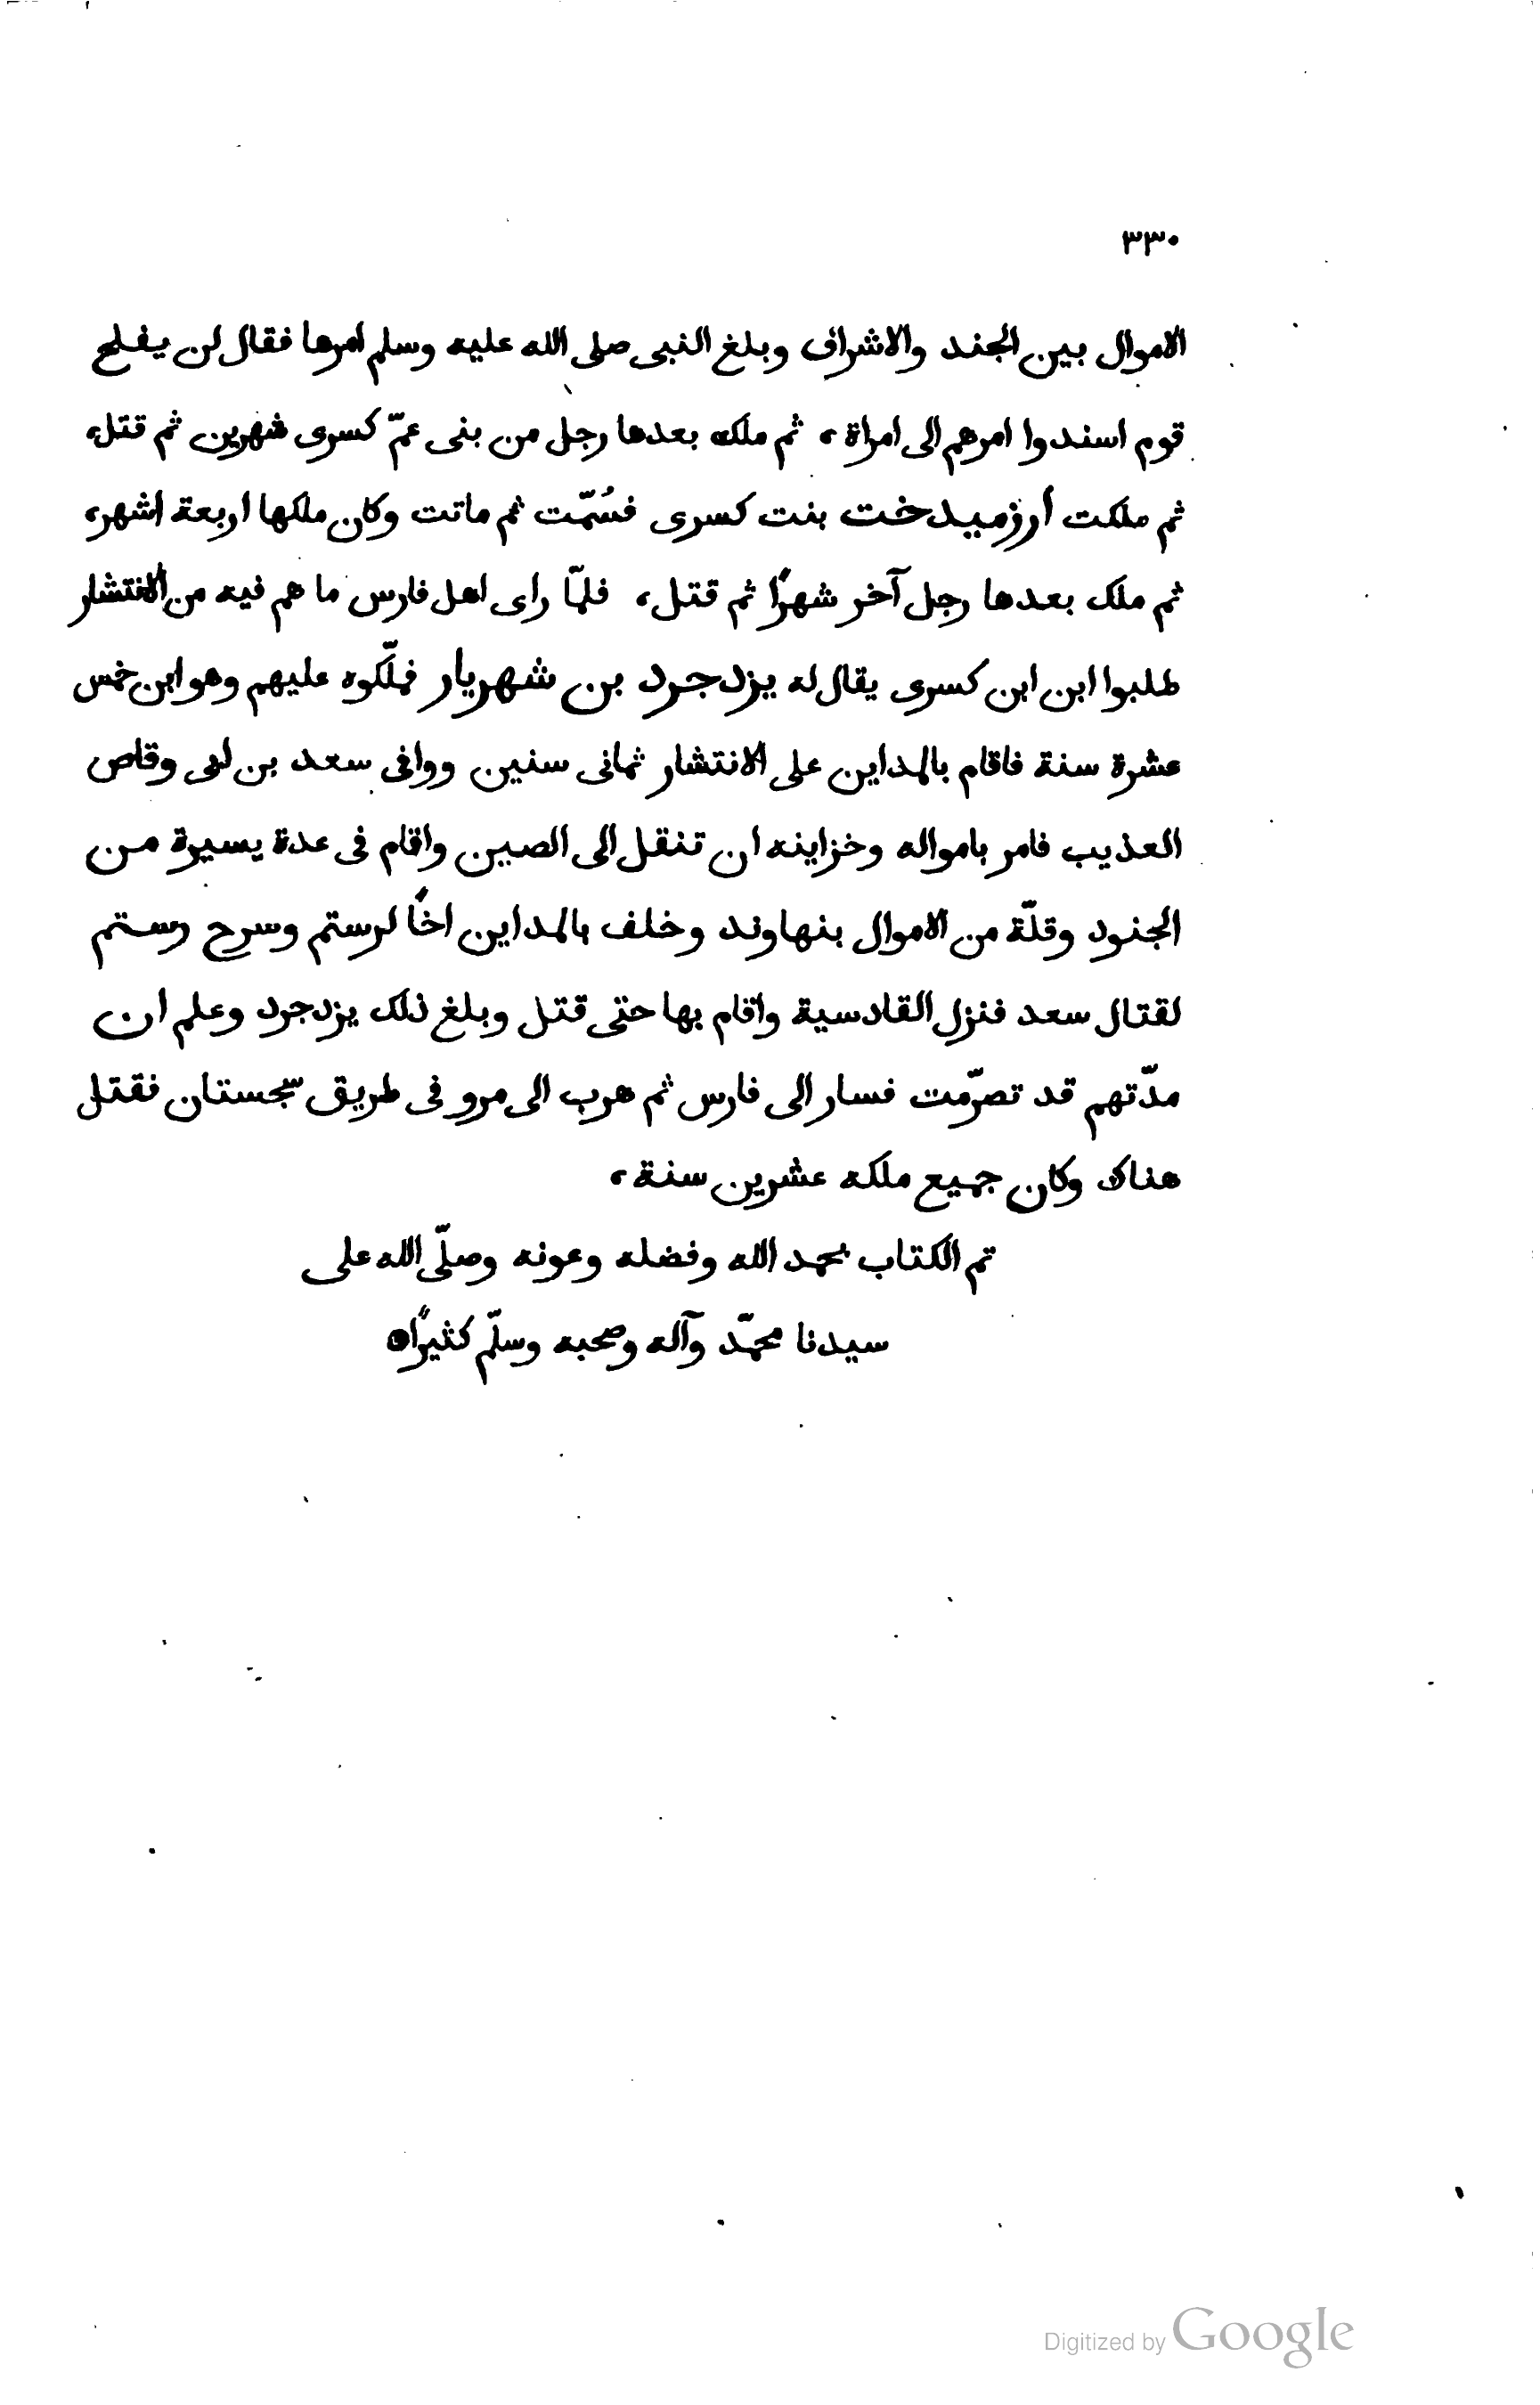 ٣٣٠
الاموال بين الجند والاشراف وبلغ النبى صلى الله عليه وسلم امرها فقال لن يفلح
قوم اسندوا امرهم الى امراة، ثم ملك بعدها رجل من بنى عمّ كسرى شهرين ثم قتل،
ثم ملكت أرزميدخت بنت كسرى فسُمّت ثم ماتت وكان ملكها اربعة اشهر،
ثم ملك بعدها رجل آخر شهرًا ثم قتل، فلمّا راى اهل فارس ما هم فيه من الانتشار
طلبوا ابن ابن كسرى يقال له يزدجرد بن شهريار فملّكوه عليهم وهو ابن خمس
عشرة سنة فاقام بالمداين على الانتشار ثمانى سنين ووافى سعد بن ابى وقاص
العذيب فامر بامواله وخزاينه ان تنقل الى الصين واقام فى عدة يسيرة من
الجنود وقلّة من الاموال بنهاوند وخلف بالمداين اخًا لرستم وسرح رستم
لقتال سعد فنزل القادسية واقام بها حتى قتل وبلغ ذلك يزدجرد وعلم ان
مدّتهم قد تصرّمت فسار الى فارس ثم هرب الى مرو فى طريق سجستان فقتل
هناك وكان جميع ملكه عشرين سنة،
تم الكتاب بحمد الله وفضله وعونه وصلّى الله على
سيدنا محمّد وآله وصحبه وسلّم كثيرًا
Digitized by Google